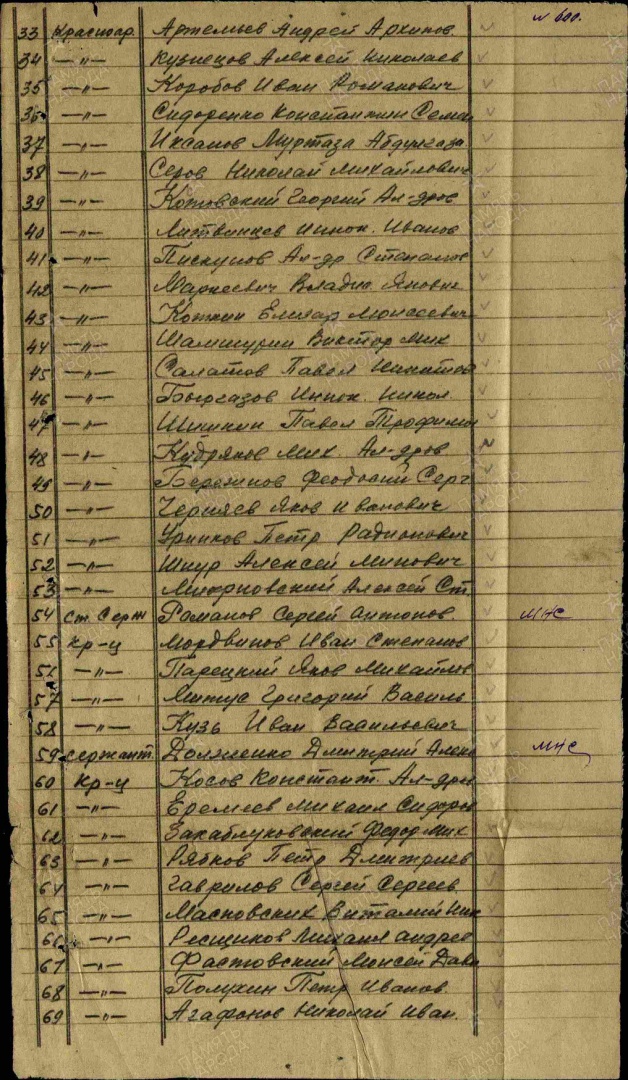 № 600.
33 Красноар. Артемьев Андрей Архипов.
34 —"— Кузнецов Алексей Николаев
35 —"— Коробов Иван Романович
36 —"— Сидоренко Константин Семен
37 —"— Иксанов Муртаза Абдулгаза
38 —"— Серов Николай Михайлович
39 —"— Котовский Георгий Ал-дров
40 —"— Литвинцев Инок. Иванов
41 —"— Пискунов Ал-др Степанов
42 —"— Маркевич Владис. Янович
43 —"— Кожин Елизар Моисеевич
44 —"— Шамшурин Виктор Мих
45 —"— Салатов Павел Никитов
46 —"— Иннок. Никол.
47 —"— Шишкин Павел Трофимов
48 —"— Кудряков Мих. Ал-дров
49 —"— Бережнов Феодосий Серг
50 —"— Черняев Яков Иванович
51 —"— Уринков Петр Радионович
52 —"— Шнур Алексей Минович
53 —"— Алексей Ст.
54 ст. Серж Романов Сергей Антонов. МНС
55 кр-ц Мордвинов Иван Степанов
56 —"— Парецкий Яков Михайлов
57 —"— Митус Григорий Василь
58 —"— Кузь Иван Васильевич
59 сержант. Должненко Дмитрий Алекс МНС
60 кр-ц Косов Констант. Ал-дров
61 —"— Еремеев Михаил Сидоров
62 —"— Закаблуковский Федор Мих
63 —"— Рябков Петр Дмитриев
64 —"— Гаврилов Сергей Сергеев.
65 —"— Масновских Виталий Ник
66 —"— Ресщиков Михаил Андрее
67 —"— Фастовский Моисей Дави
68 —"— Полухин Петр Иванов.
69 —"— Агафонов Николай Иван.